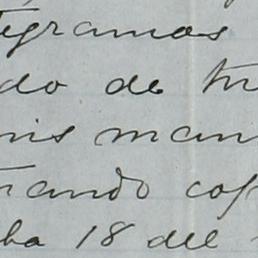 tegramas
do de
mis man
rando cop
ba 18 del